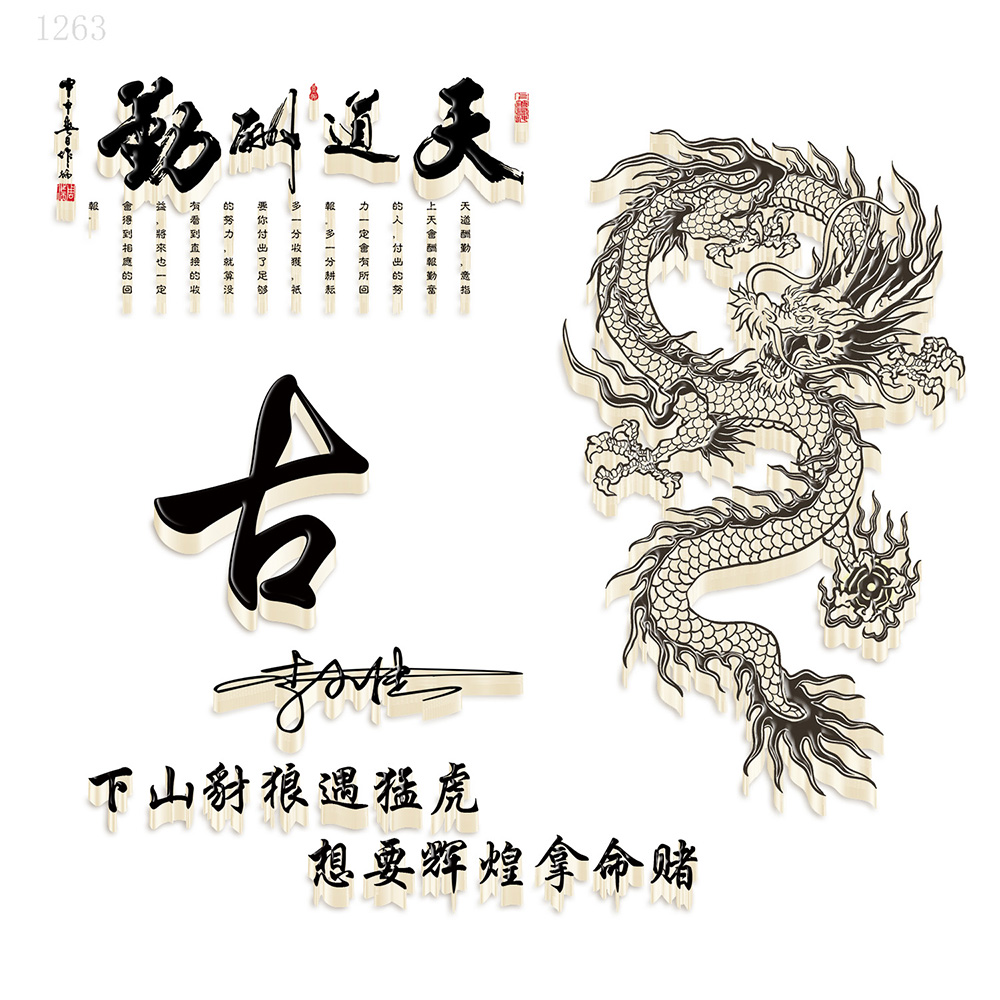 1263
天道酬勤
天道酬勤，意指
上天會酬報勤奮
的人，付出的努
力一定會有所回
報，多一分耕耘
多一分收獲，祇
要你付出了足夠
的努力，就算沒
有看到直接的收
益，將來也一定
會得到相應的回
報。
古
下山豺狼遇猛虎
想要辉煌拿命赌